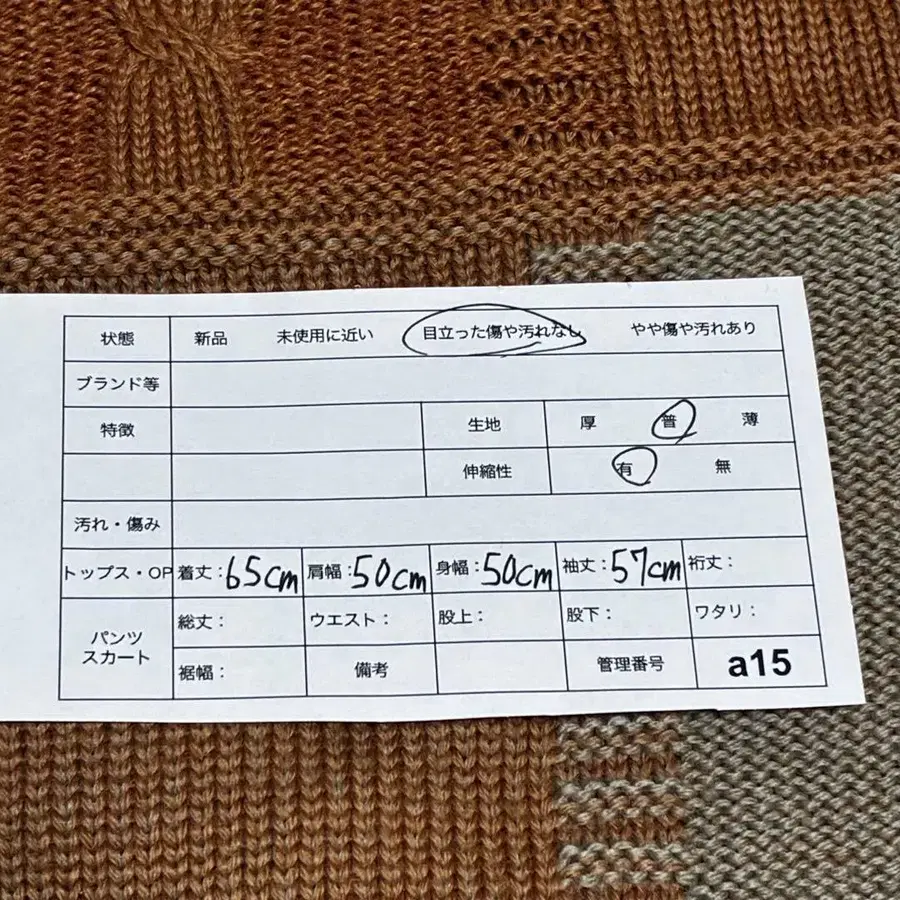 状態 新品 未使用に近い 目立った傷や汚れなし やや傷や汚れあり
ブランド等
特徴 生地 厚 普 薄
伸縮性 有 無
汚れ・傷み
トップス・OP 着丈：65cm 肩幅：50cm 身幅：50cm 袖丈：57cm 裄丈：
パンツ スカート 総丈： ウエスト： 股上： 股下： ワタリ：
裾幅： 備考 管理番号 a15